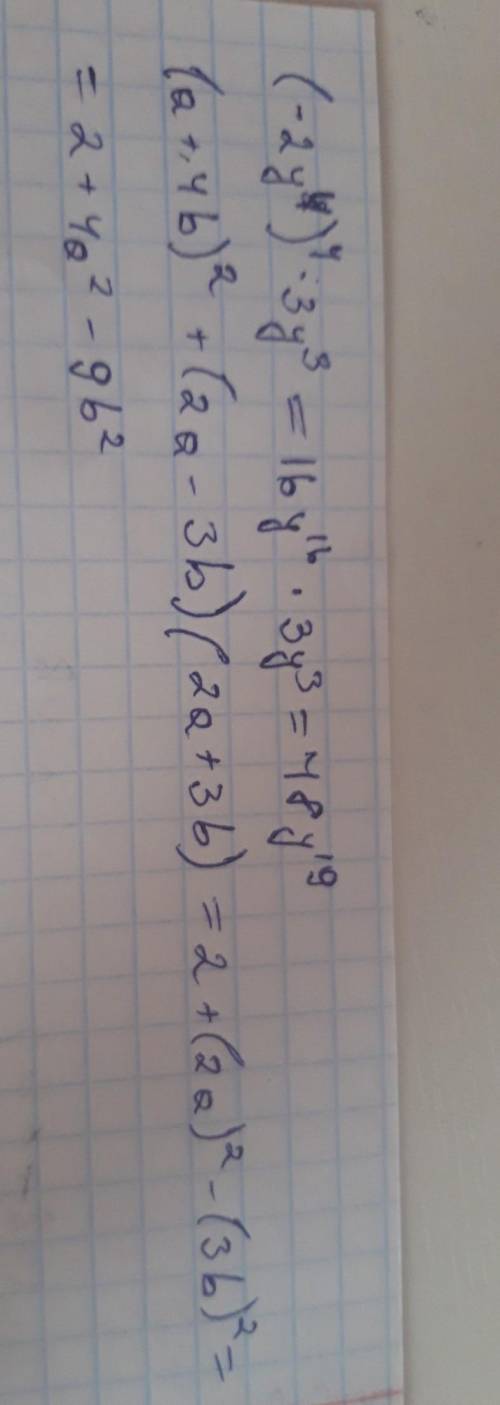 (-2y⁴)⁴ · 3y³ = 16y¹⁶ · 3y³ = 48y¹⁹
(a + 4b)² + (2a - 3b)(2a + 3b) = 2 + (2a)² - (3b)² =
= 2 + 4a² - 9b²